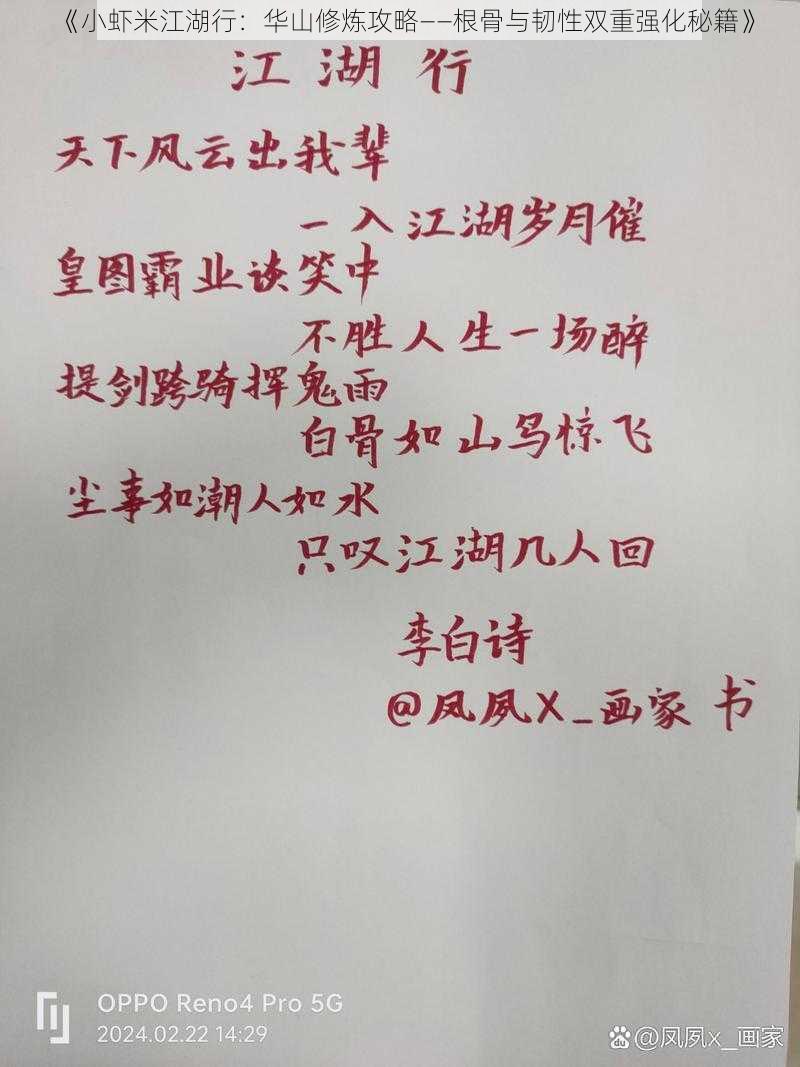 《小虾米江湖行：华山修炼攻略——根骨与韧性双重强化秘籍》
江湖行
天下风云出我辈
一入江湖岁月催
皇图霸业谈笑中
不胜人生一场醉
提剑跨骑挥鬼雨
白骨如山鸟惊飞
尘事如潮人如水
只叹江湖几人回
李白诗
@凤夙X_画家 书
OPPO Reno4 Pro 5G
2024.02.22 14:29
Bai du @凤夙x_画家